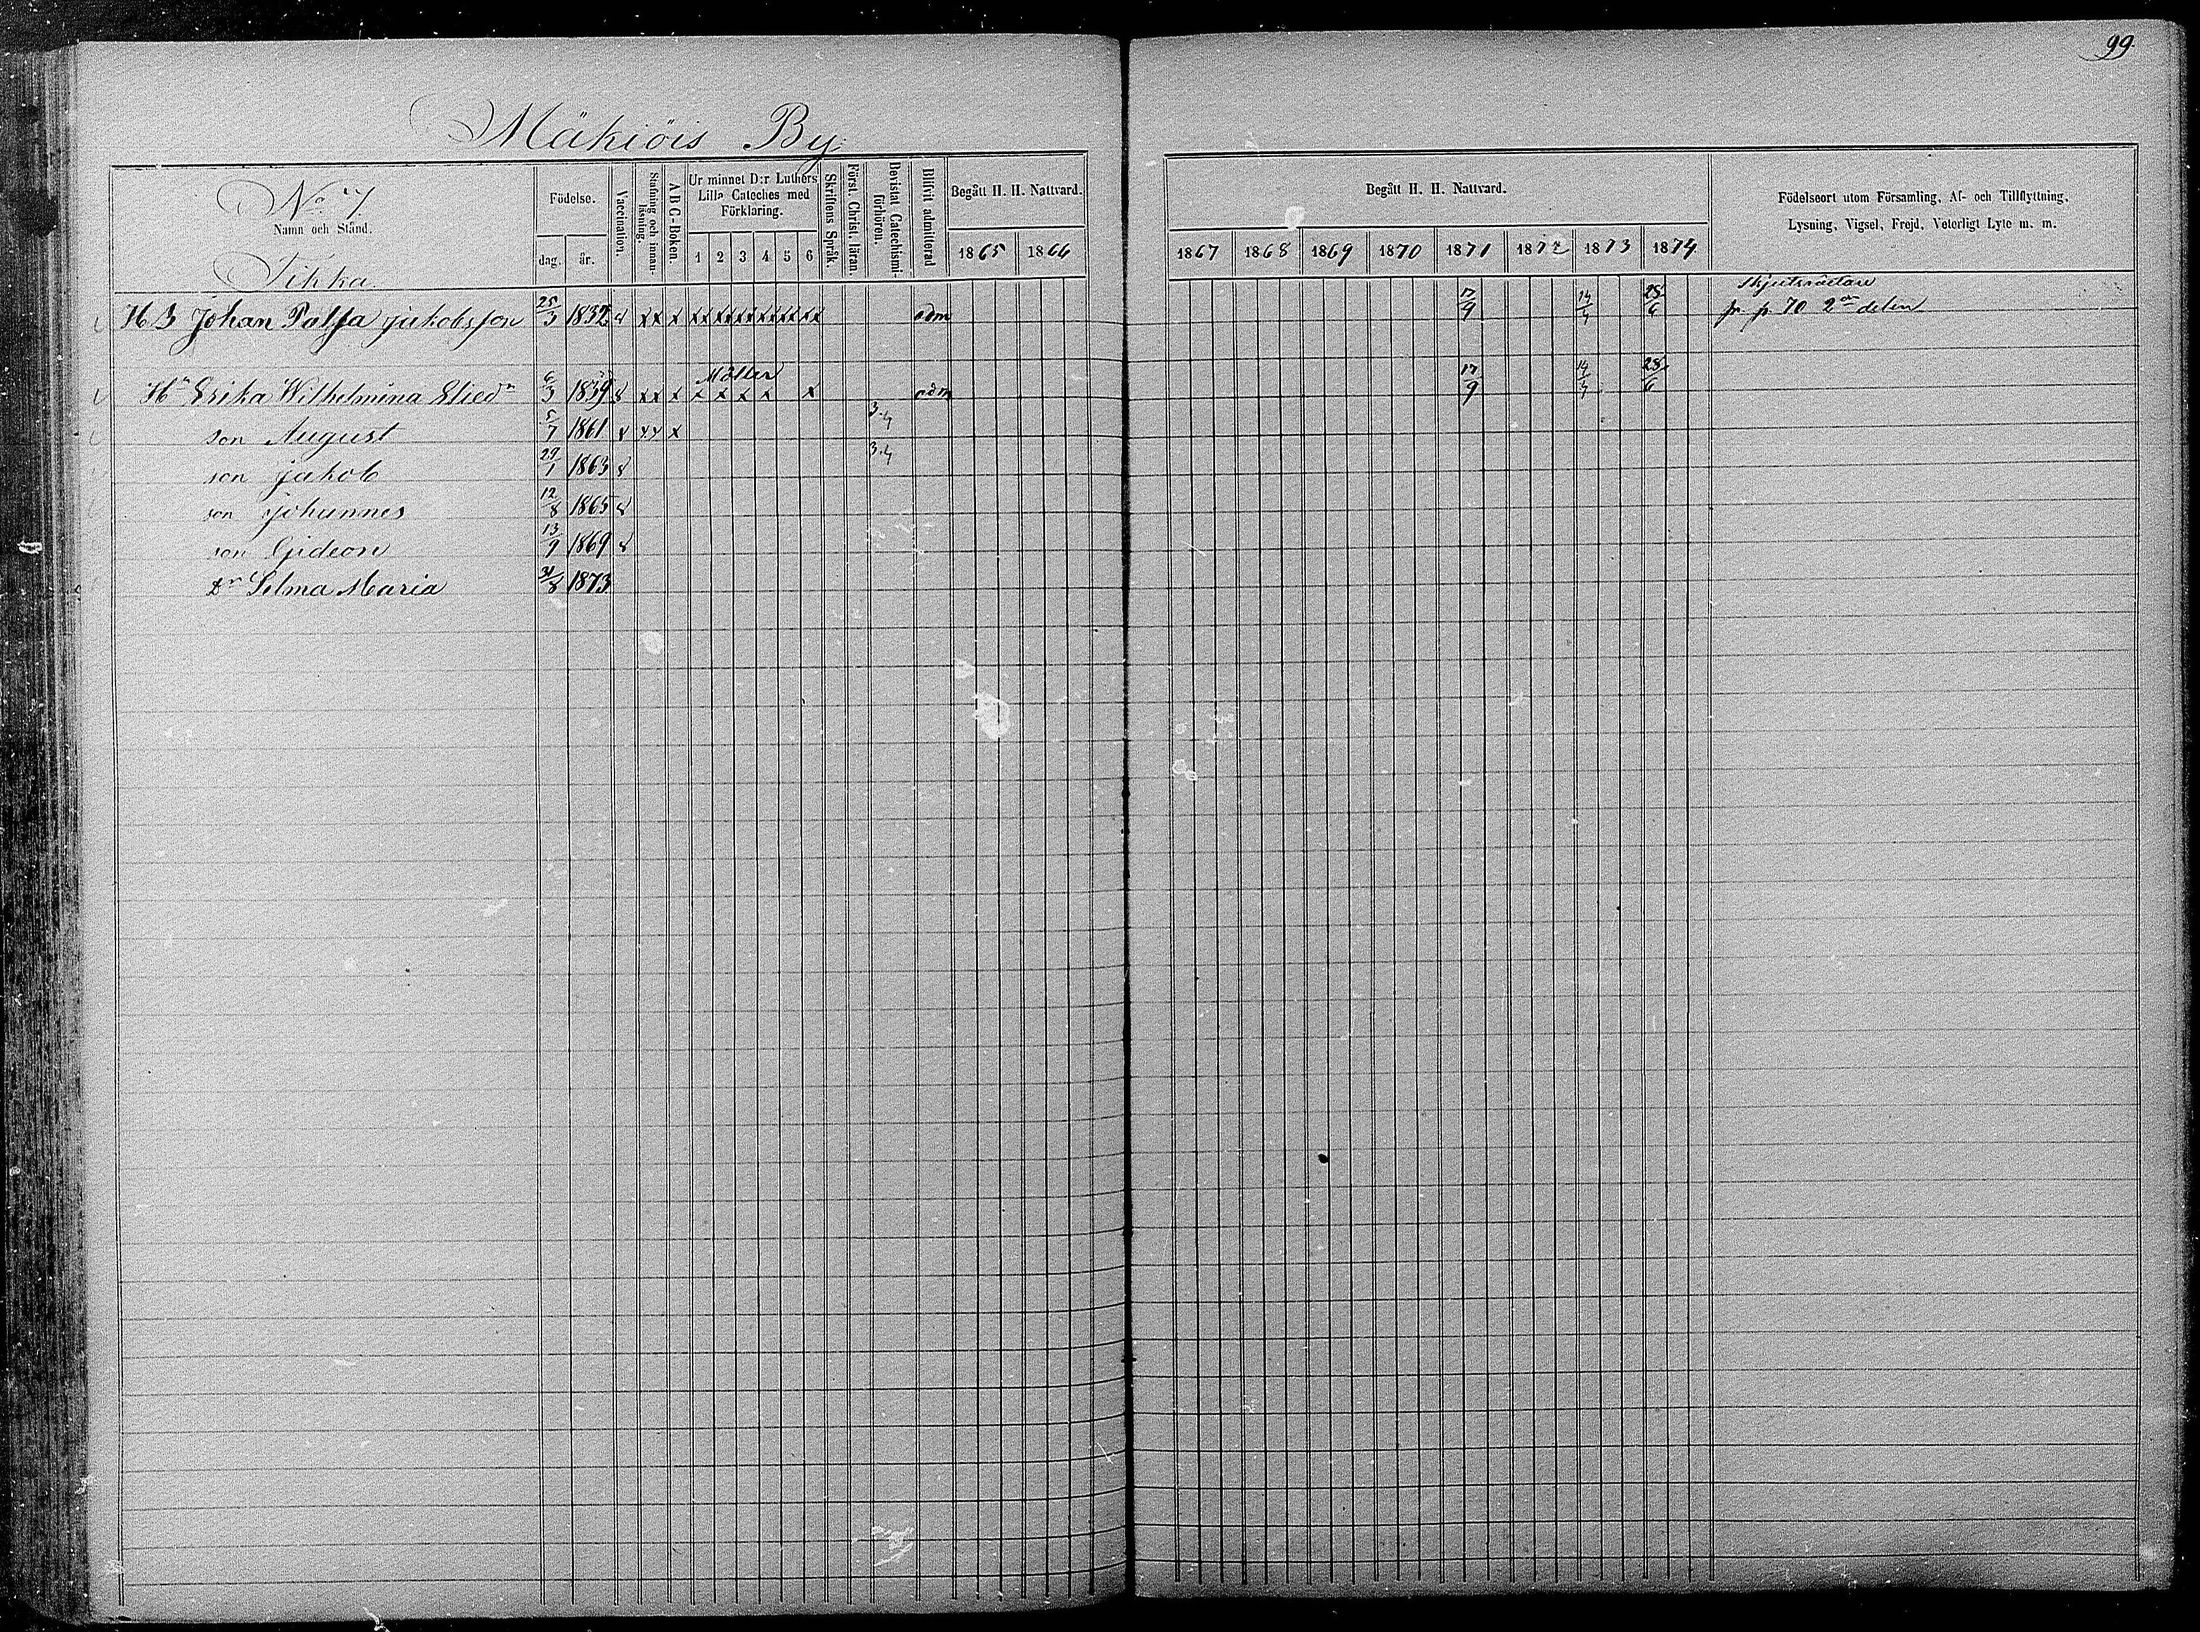 99.
Mäkiöis By.
No 7.
Namn och Stånd.
Födelse.
dag. år.
Vaccination.
Stafning och innanläsning.
ABC-Boken.
Ur minnet D:r Luthers Lilla Cateches med Förklaring.
1 2 3 4 5 6
Skriftens Språk.
Först. Christ. läran.
Bevistat Catechismi-förhören.
Blifvit admitterad
Begått H. H. Nattvard.
1865 1866
Begått H. H. Nattvard.
1867 1868 1869 1870 1871 1872 1873 1874
Födelseort utom Församling, Af- och Tillflyttning,
Lysning, Vigsel, Frejd, Veterligt Lyte m. m.
Sikka.
H B Johan Jakobsson 25/3 1832 v xx x xx xx xx xx xx xx adm 17/9 14/4 28/6 fr p. 70 2 delen
Hu Erika Wilhelmina 6/3 1839 v xx x x x x x x adm 17/9 14/4 28/6
son August 5/7 1861 v xx x 3.4
son Jakob 29/1 1863 v 3.4
son Johannes 12/8 1865 v
son Gideon 13/9 1869 v
Dr Selma Maria 31/8 1873